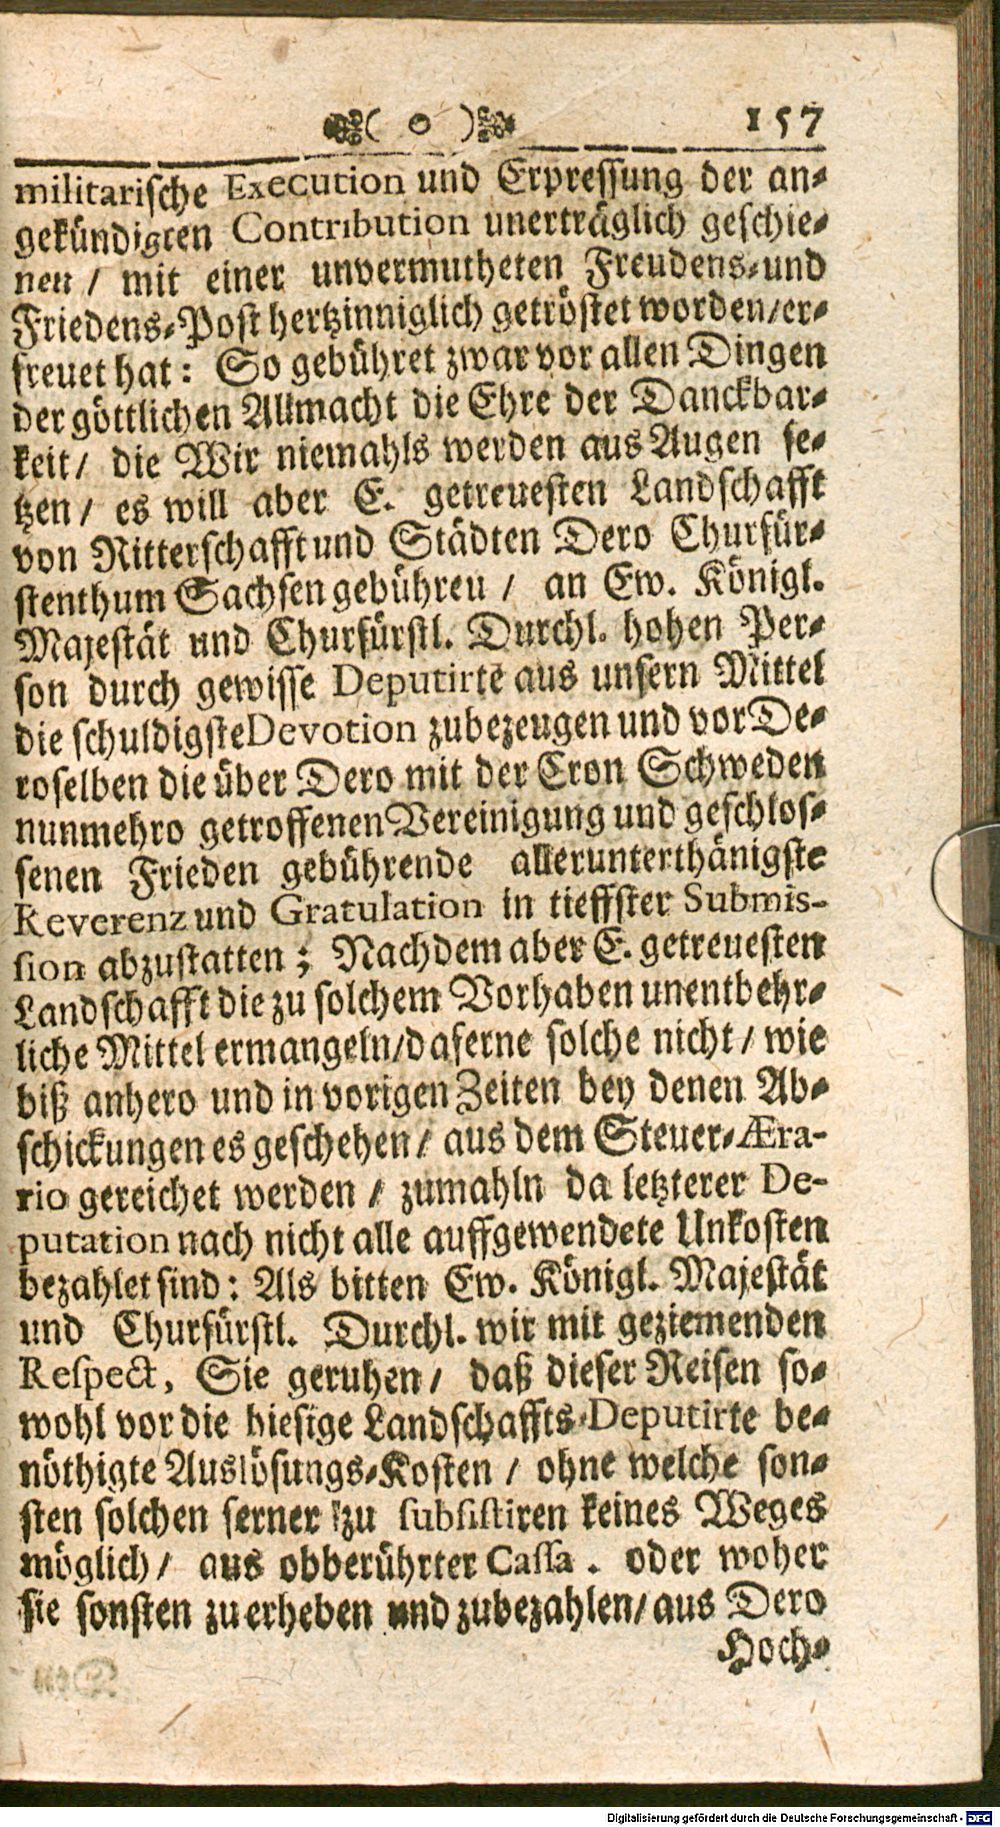 ( o ) 157
militarische Execution und Erpressung der an-
gekündigten Contribution unerträglich geschie-
nen / mit einer unvermutheten Freudens-und
Friedens-Post hertzinniglich getröstet worden/er-
freuet hat: So gebühret zwar vor allen Dingen
der göttlichen Allmacht die Ehre der Danckbar-
keit/ die Wir niemahls werden aus Augen se-
tzen/ es will aber E. getreuesten Landschafft
von Ritterschafft und Städten Dero Churfür-
stenthum Sachsen gebühren / an Ew. Königl.
Majestät und Churfürstl. Durchl. hohen Per-
son durch gewisse Deputirte aus unsern Mittel
die schuldigste Devotion zubezeugen und vor De-
roselben die über Dero mit der Cron Schweden
nunmehro getroffenen Vereinigung und geschlos-
senen Frieden gebührende allerunterthänigste
Reverenz und Gratulation in tieffster Submis-
sion abzustatten; Nachdem aber E. getreuesten
Landschafft die zu solchem Vorhaben unentbehr-
liche Mittel ermangeln/daferne solche nicht/ wie
biß anhero und in vorigen Zeiten bey denen Ab-
schickungen es geschehen/ aus dem Steuer-Æra-
rio gereichet werden / zumahln da letzterer De-
putation nach nicht alle auffgewendete Unkosten
bezahlet sind: Als bitten Ew. Königl. Majestät
und Churfürstl. Durchl. wir mit geziemenden
Respect, Sie geruhen/ daß dieser Reisen so-
wohl vor die hiesige Landschaffts-Deputirte be-
nöthigte Auslösungs-Kosten / ohne welche son-
sten solchen ferner zu subsistiren keines Weges
möglich/ aus obberührter Cassa. oder woher
sie sonsten zu erheben und zubezahlen/aus Dero
Hoch-
Digitalisierung gefördert durch die Deutsche Forschungsgemeinschaft - DFG